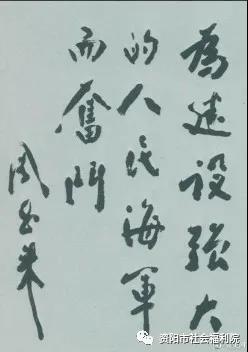 為建设强大
的人民海軍
而奮鬥
周恩来
资阳市社会福利院